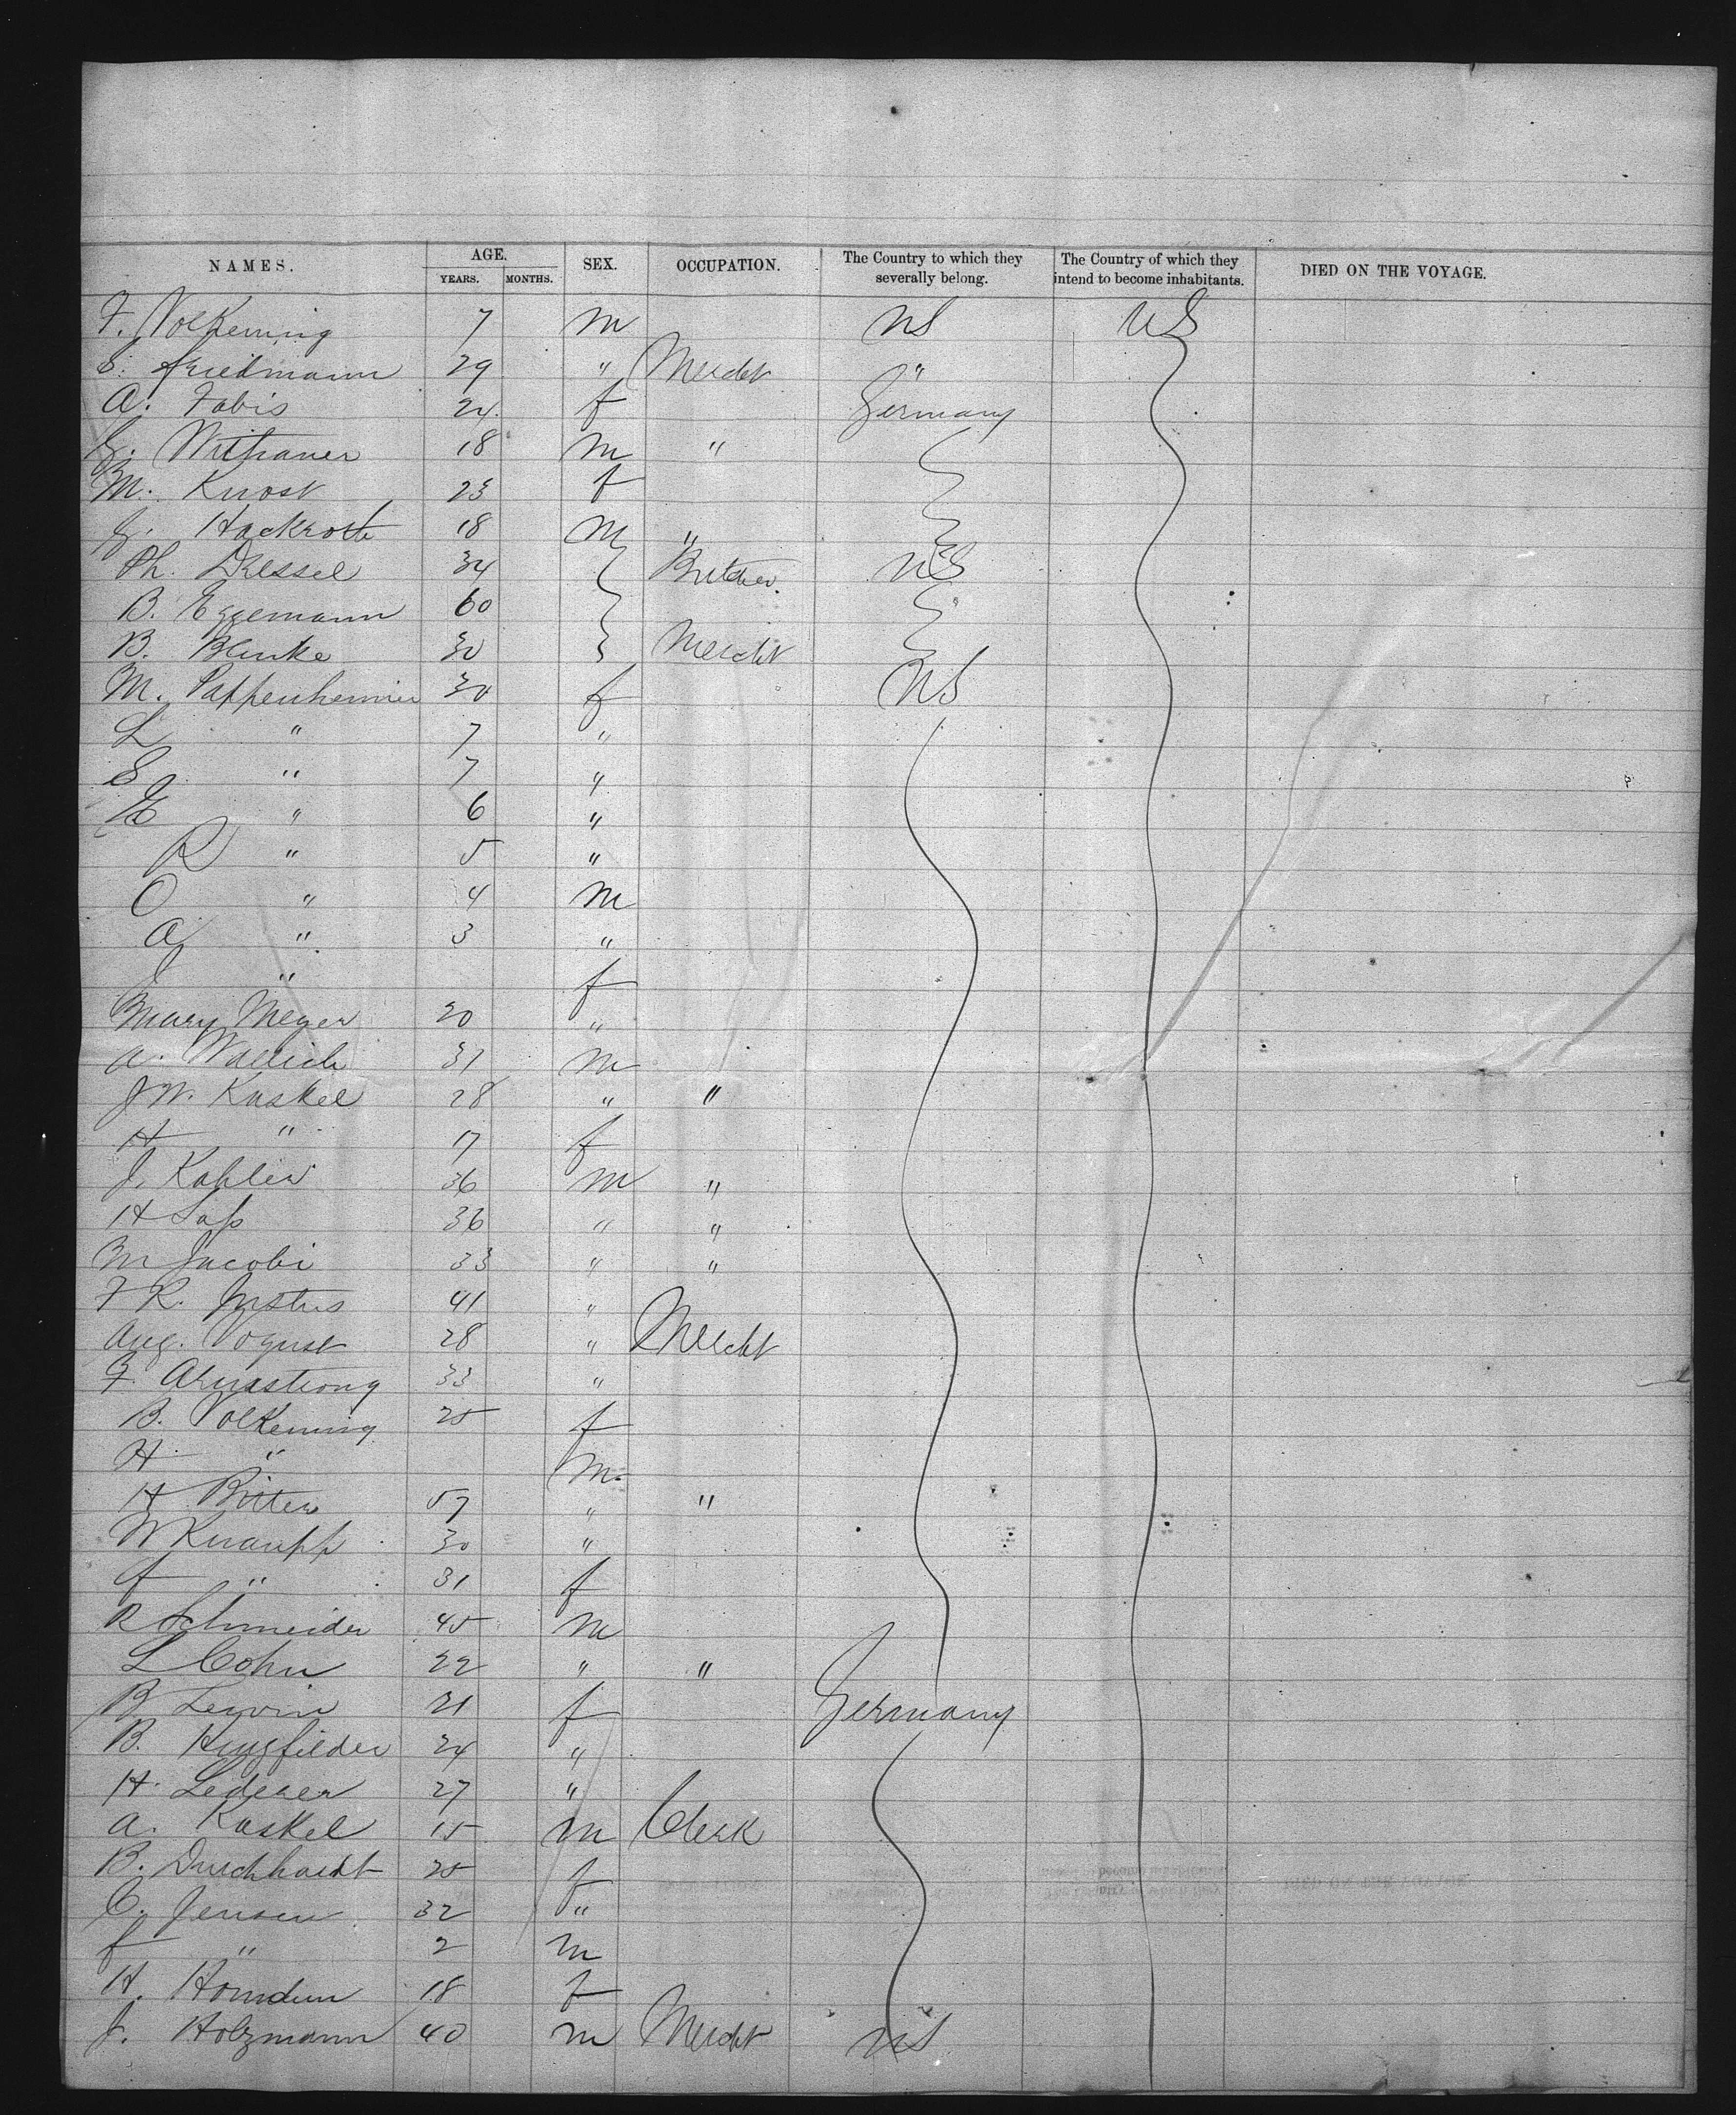 NAMES. AGE. YEARS. MONTHS. SEX. OCCUPATION. The Country to which they severally belong. The Country of which they intend to become inhabitants. DIED ON THE VOYAGE.
F. Volkening 7 m US US
S. Friedmann 29 " Mercht "
A. Fabis 24 f Germany
G. 18 m "
M. Knost 23 f
G. Hackroth 18 m "
Ph. Dressel 34 Butcher US
B. Eggemann 60
B. Blanke 30 Mercht
M. Pappenheimer 30 f US
L " 7 "
S " 7 "
E " 6 "
R " 5 "
O " 4 m
A " 3 "
J " f
Mary Meyer 20 "
A. Wallich 31 m
J W. Kaskel 28 " "
H " 17 f
J. Kahler 36 m "
H Lass 36 " "
M Jacobi 33 " "
F K. Justus 41 "
Aug. 28 " Mercht
F. Armstrong 33 "
B. Volkening 25 f
H. " m
H Ritter 57 " "
W Knaupp 30 "
f " 31 f
R Schneider 45 m
L Cohn 22 " "
B Lewin 21 f Germany
B. 24 "
H. Lederer 27 "
A. Kaskel 15 m Clerk
B. 25 f
C. Jensen 32 "
f " 2 m
H. 18 f
J. Holzmann 40 m Mercht US